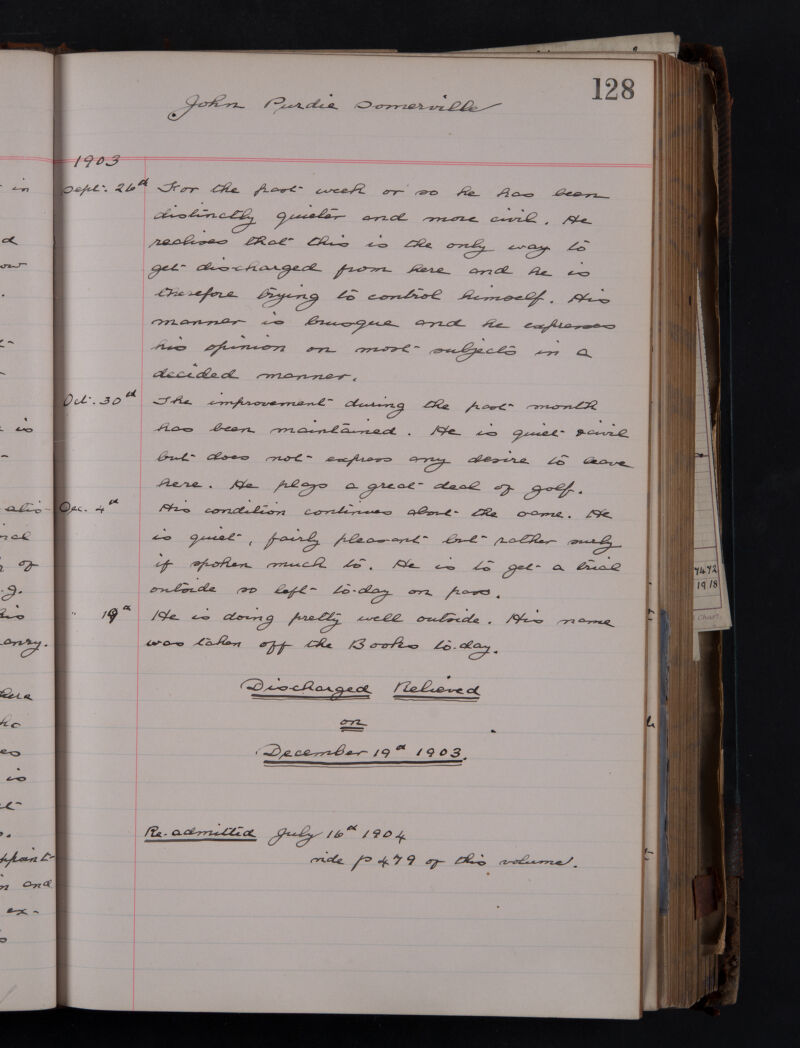 128
John Purdie Somerville
1903
Sept. 26th For the past week or so he has been
distinctly quieter and more civil. He
realises that this is the only way to
get discharged from here and he is
therefore trying to control himself. His
manner is brusque and he expresses
his opinion on most subjects in a
decided manner.
Oct. 30th The improvement during the past month
has been maintained. He is quiet & civil
but does not express any desire to leave
here. He plays a great deal of golf.
Dec. 4th His condition continues about the same. He
is quiet, fairly pleasant but rather surly
if spoken much to. He is to get a trial
outside so left to-day on pass.
" 19th He is doing pretty well outside. His name
was taken off the Books to-day.
Discharged Relieved
on
December 19th 1903.
Re-admitted July 16th 1904
vide p 479 of this volume.
in
is
of
his
here
es
is
and
ex-
7472
1918